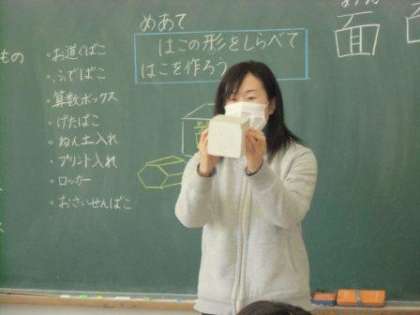 もの
・お道ぐばこ
・ふでばこ
・算数ボックス
・げたばこ
・ねん土入れ
・プリント入れ
・ロッカー
・おさいせんばこ
めあて
はこの形をしらべて
はこを作ろう
面